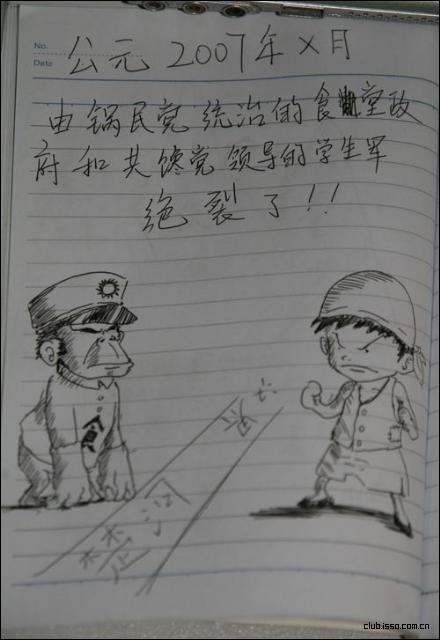 No.
Date
公元 2007年X月
由锅民党统治的食堂政
府和共馋党领导的学生军
绝裂了!!
食
楚河
club.isso.com.cn